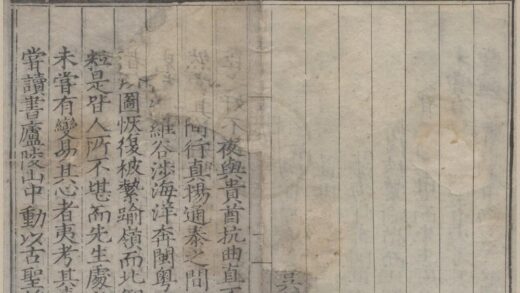 夜與貴酋抗曲直
間行真揚通泰之間
維谷涉海洋奔閩粤
圖恢復被縶踰嶺而北
粒是皆人所不堪而先生處
未嘗有變易其心者夷考其
嘗讀書廬陵山中動以古聖